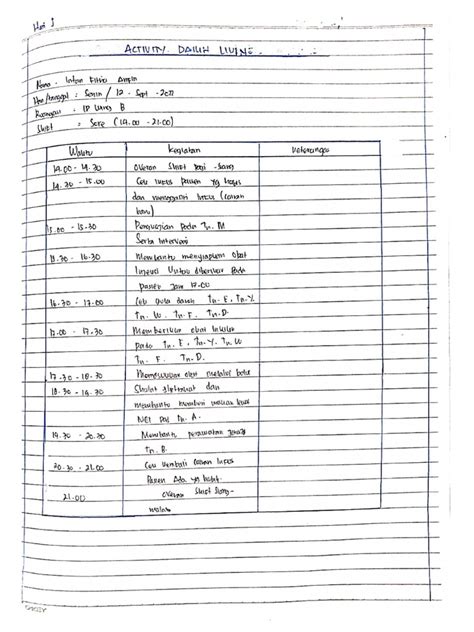 Hari 1
ACTIVITY DAILY LIVING
Nama : Intan Fitria
Hari/tanggal : Senin / 12 - Sept - 2022
Ruangan : IP Lung B
Shift : Sore (14.00 - 21.00)
Waktu Kegiatan Keterangan
14.00 - 14.30 Overan Shift pagi - siang
14.30 - 15.00 Cek infus pasien yg habis
dan mengganti infus (cairan
baru)
15.00 - 15.30 Pengkajian pada Tn. M
Serta Intervensi
15.30 - 16.30 Membantu menyiapkan obat
Injeksi Untuk diberikan pada
pasien Jam 17.00
16.30 - 17.00 Cek Gula darah Tn. E, Tn. Y.
Tn. W. Tn. F. Tn. D.
17.00 - 17.30 Memberikan obat
pada Tn. E, Tn. Y. Tn. W
Tn. F. Tn. D.
17.30 - 18.30 Memasukkan obat melalui bolus
18.30 - 19.30 Sholat dan
membantu memberi makan lewat
NGT Tn. A.
19.30 - 20.30 Membantu perawatan
Tn. B.
20.30 - 21.00 Cek kembali cairan infus
Pasien Ada yg habis.
21.00 Overan Shift Siang -
malam